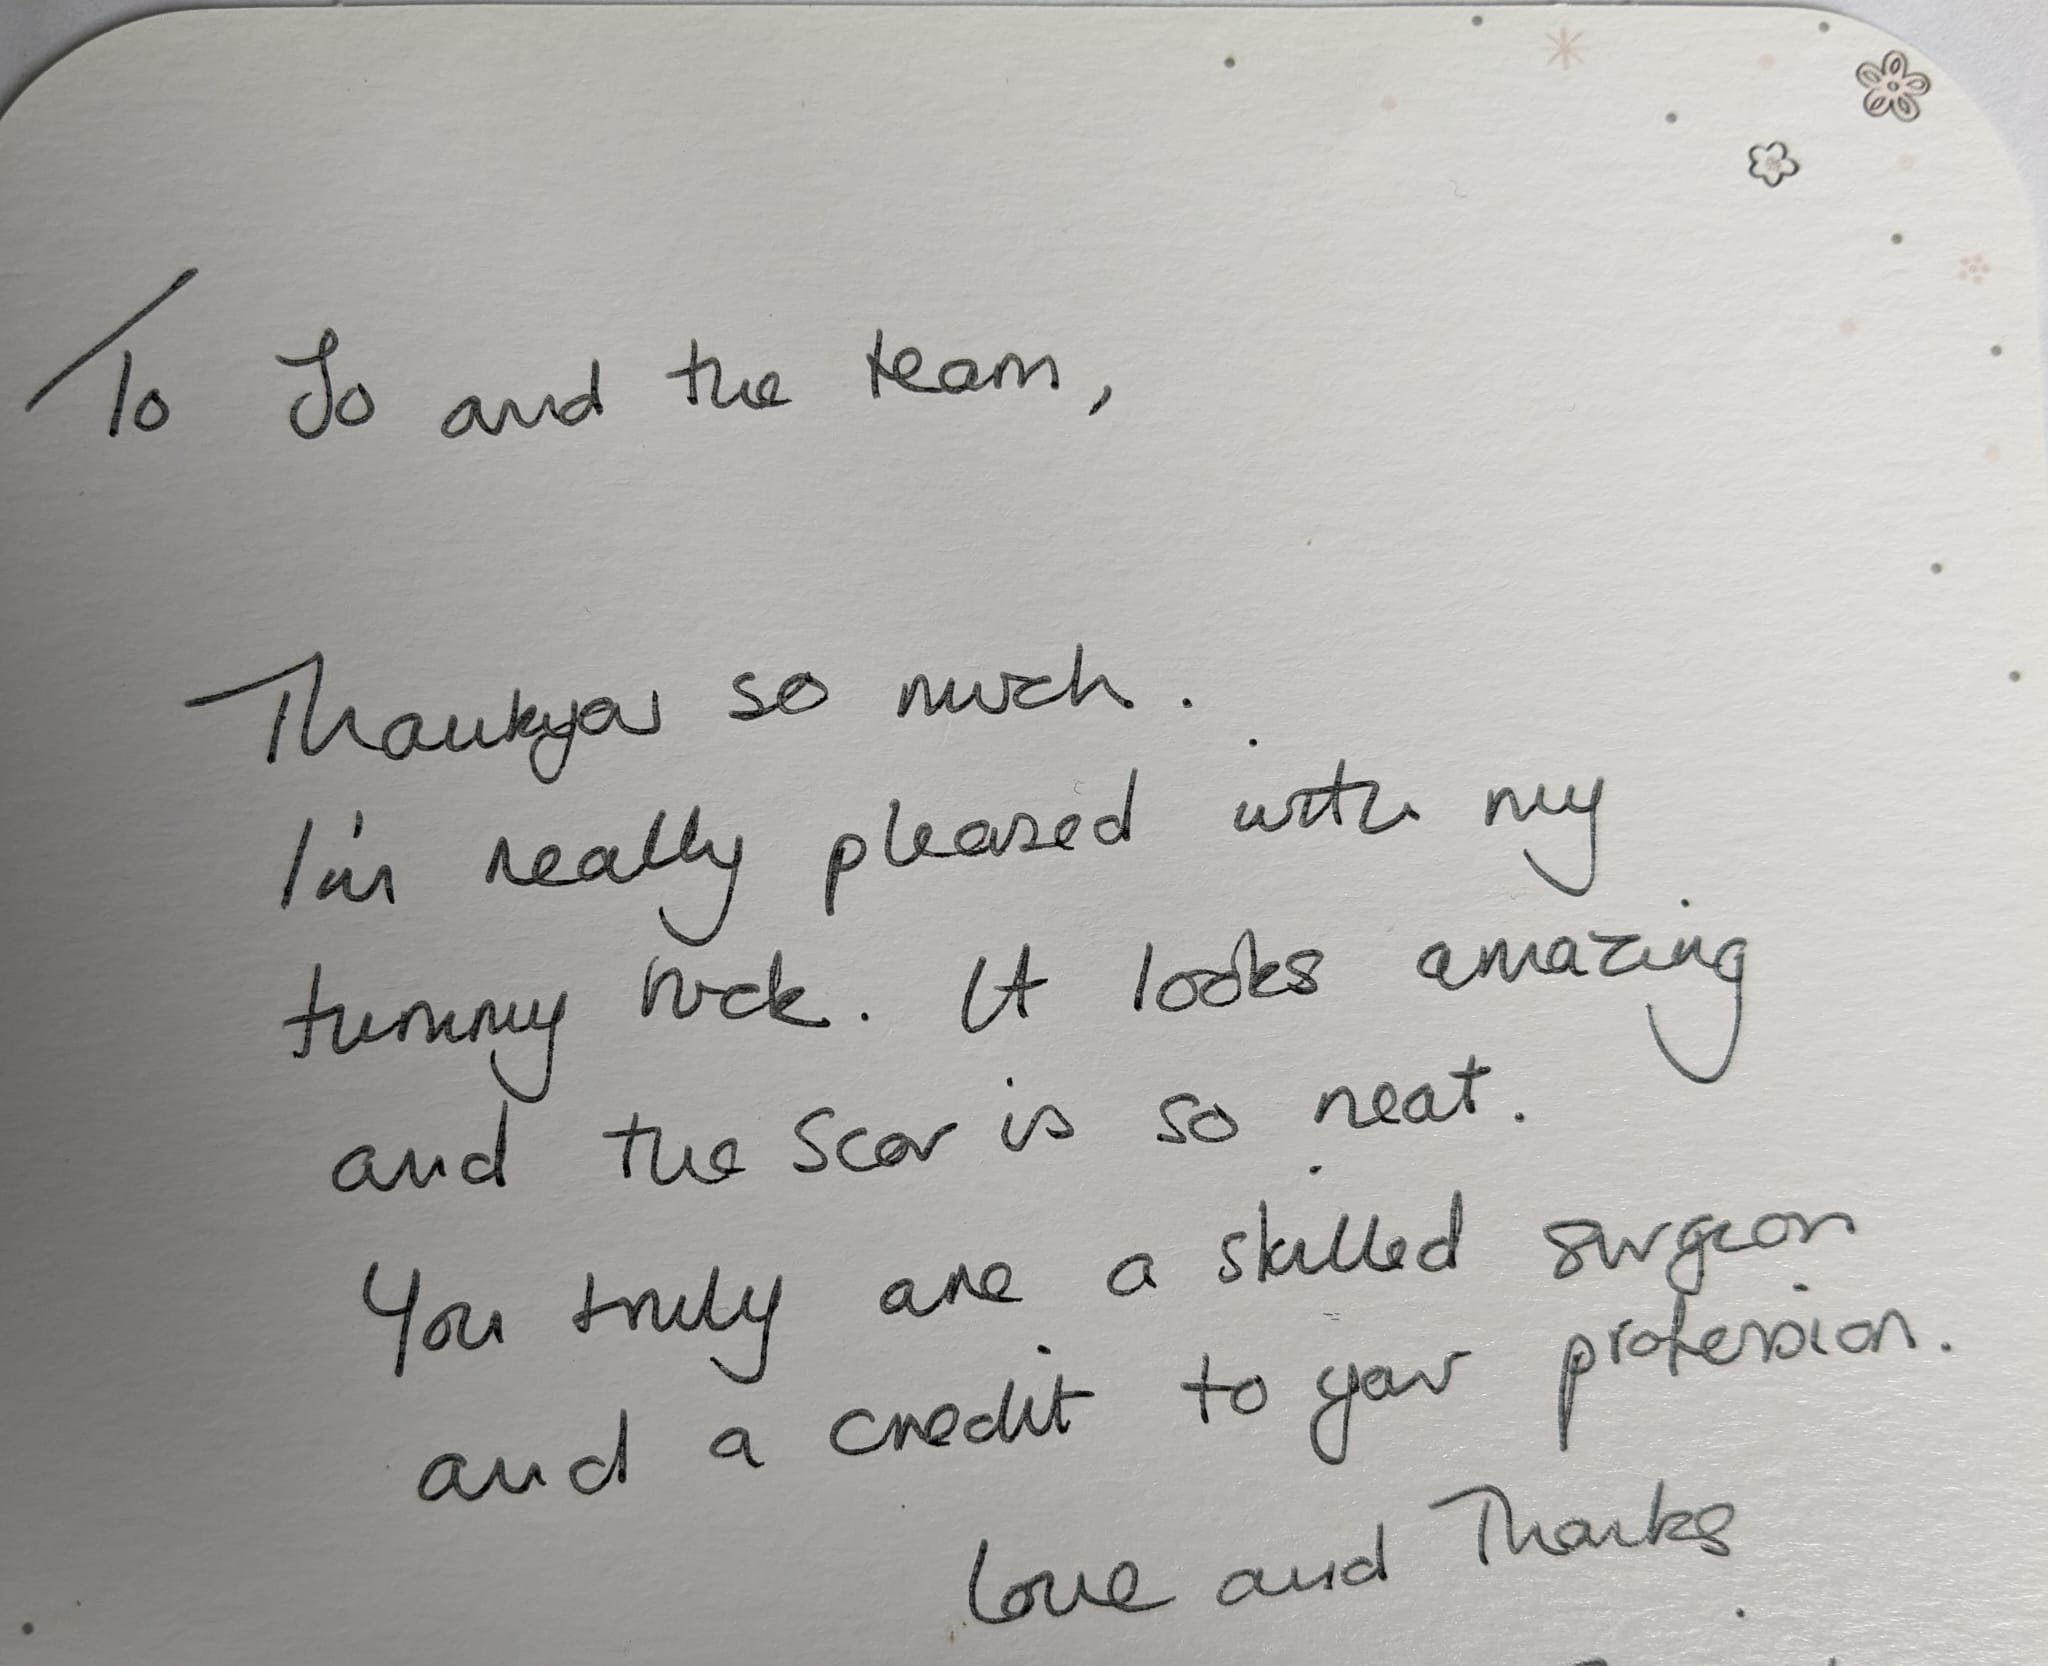 To Jo and the team,
Thankyou so much.
I'm really pleased with my
tummy tuck. It looks amazing
and the scar is so neat.
You truly are a skilled surgeon
and a credit to your profession.
Love and Thanks